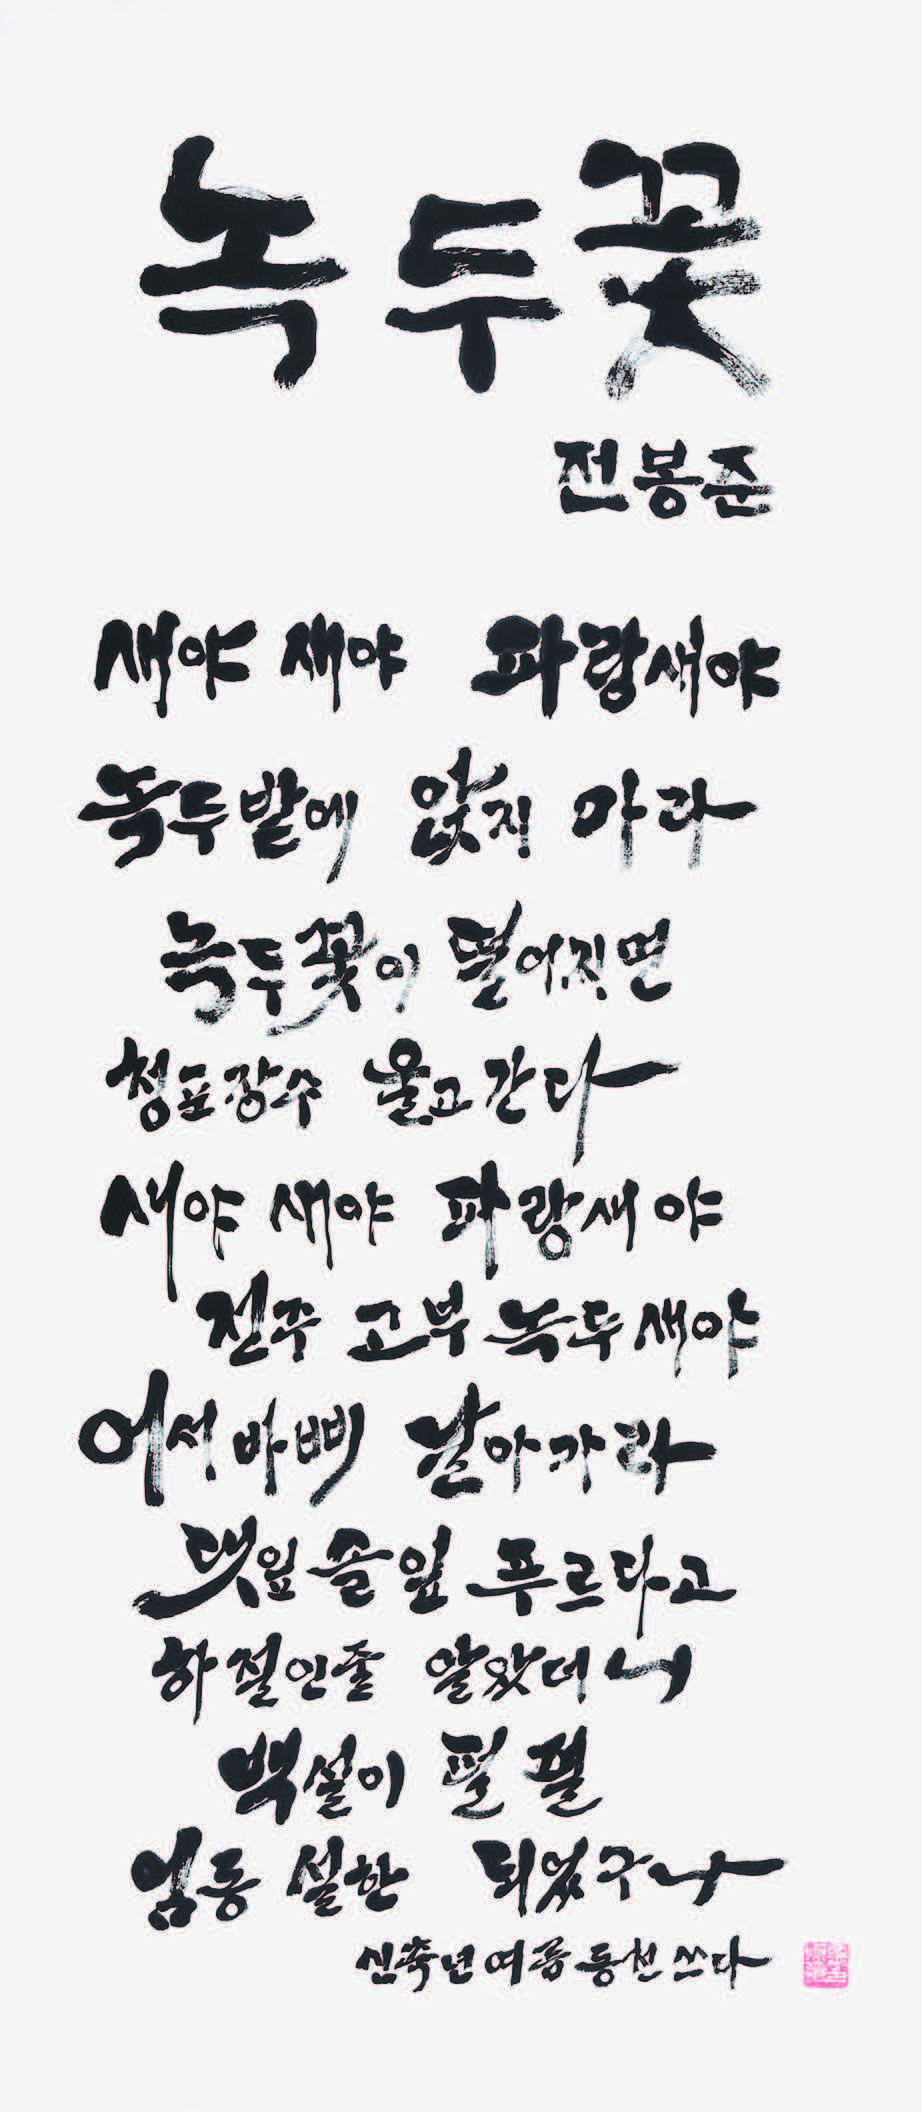 녹두꽃
전봉준
새야 새야 파랑새야
녹두밭에 앉지 마라
녹두꽃이 떨어지면
청포장수 울고 간다
새야 새야 파랑새야
전주 고부 녹두새야
어서 바삐 날아가라
댓잎 솔잎 푸르다고
하절인줄 알았더니
백설이 펄펄
엄동 설한 되었구나
신축년 여름 동천 쓰다